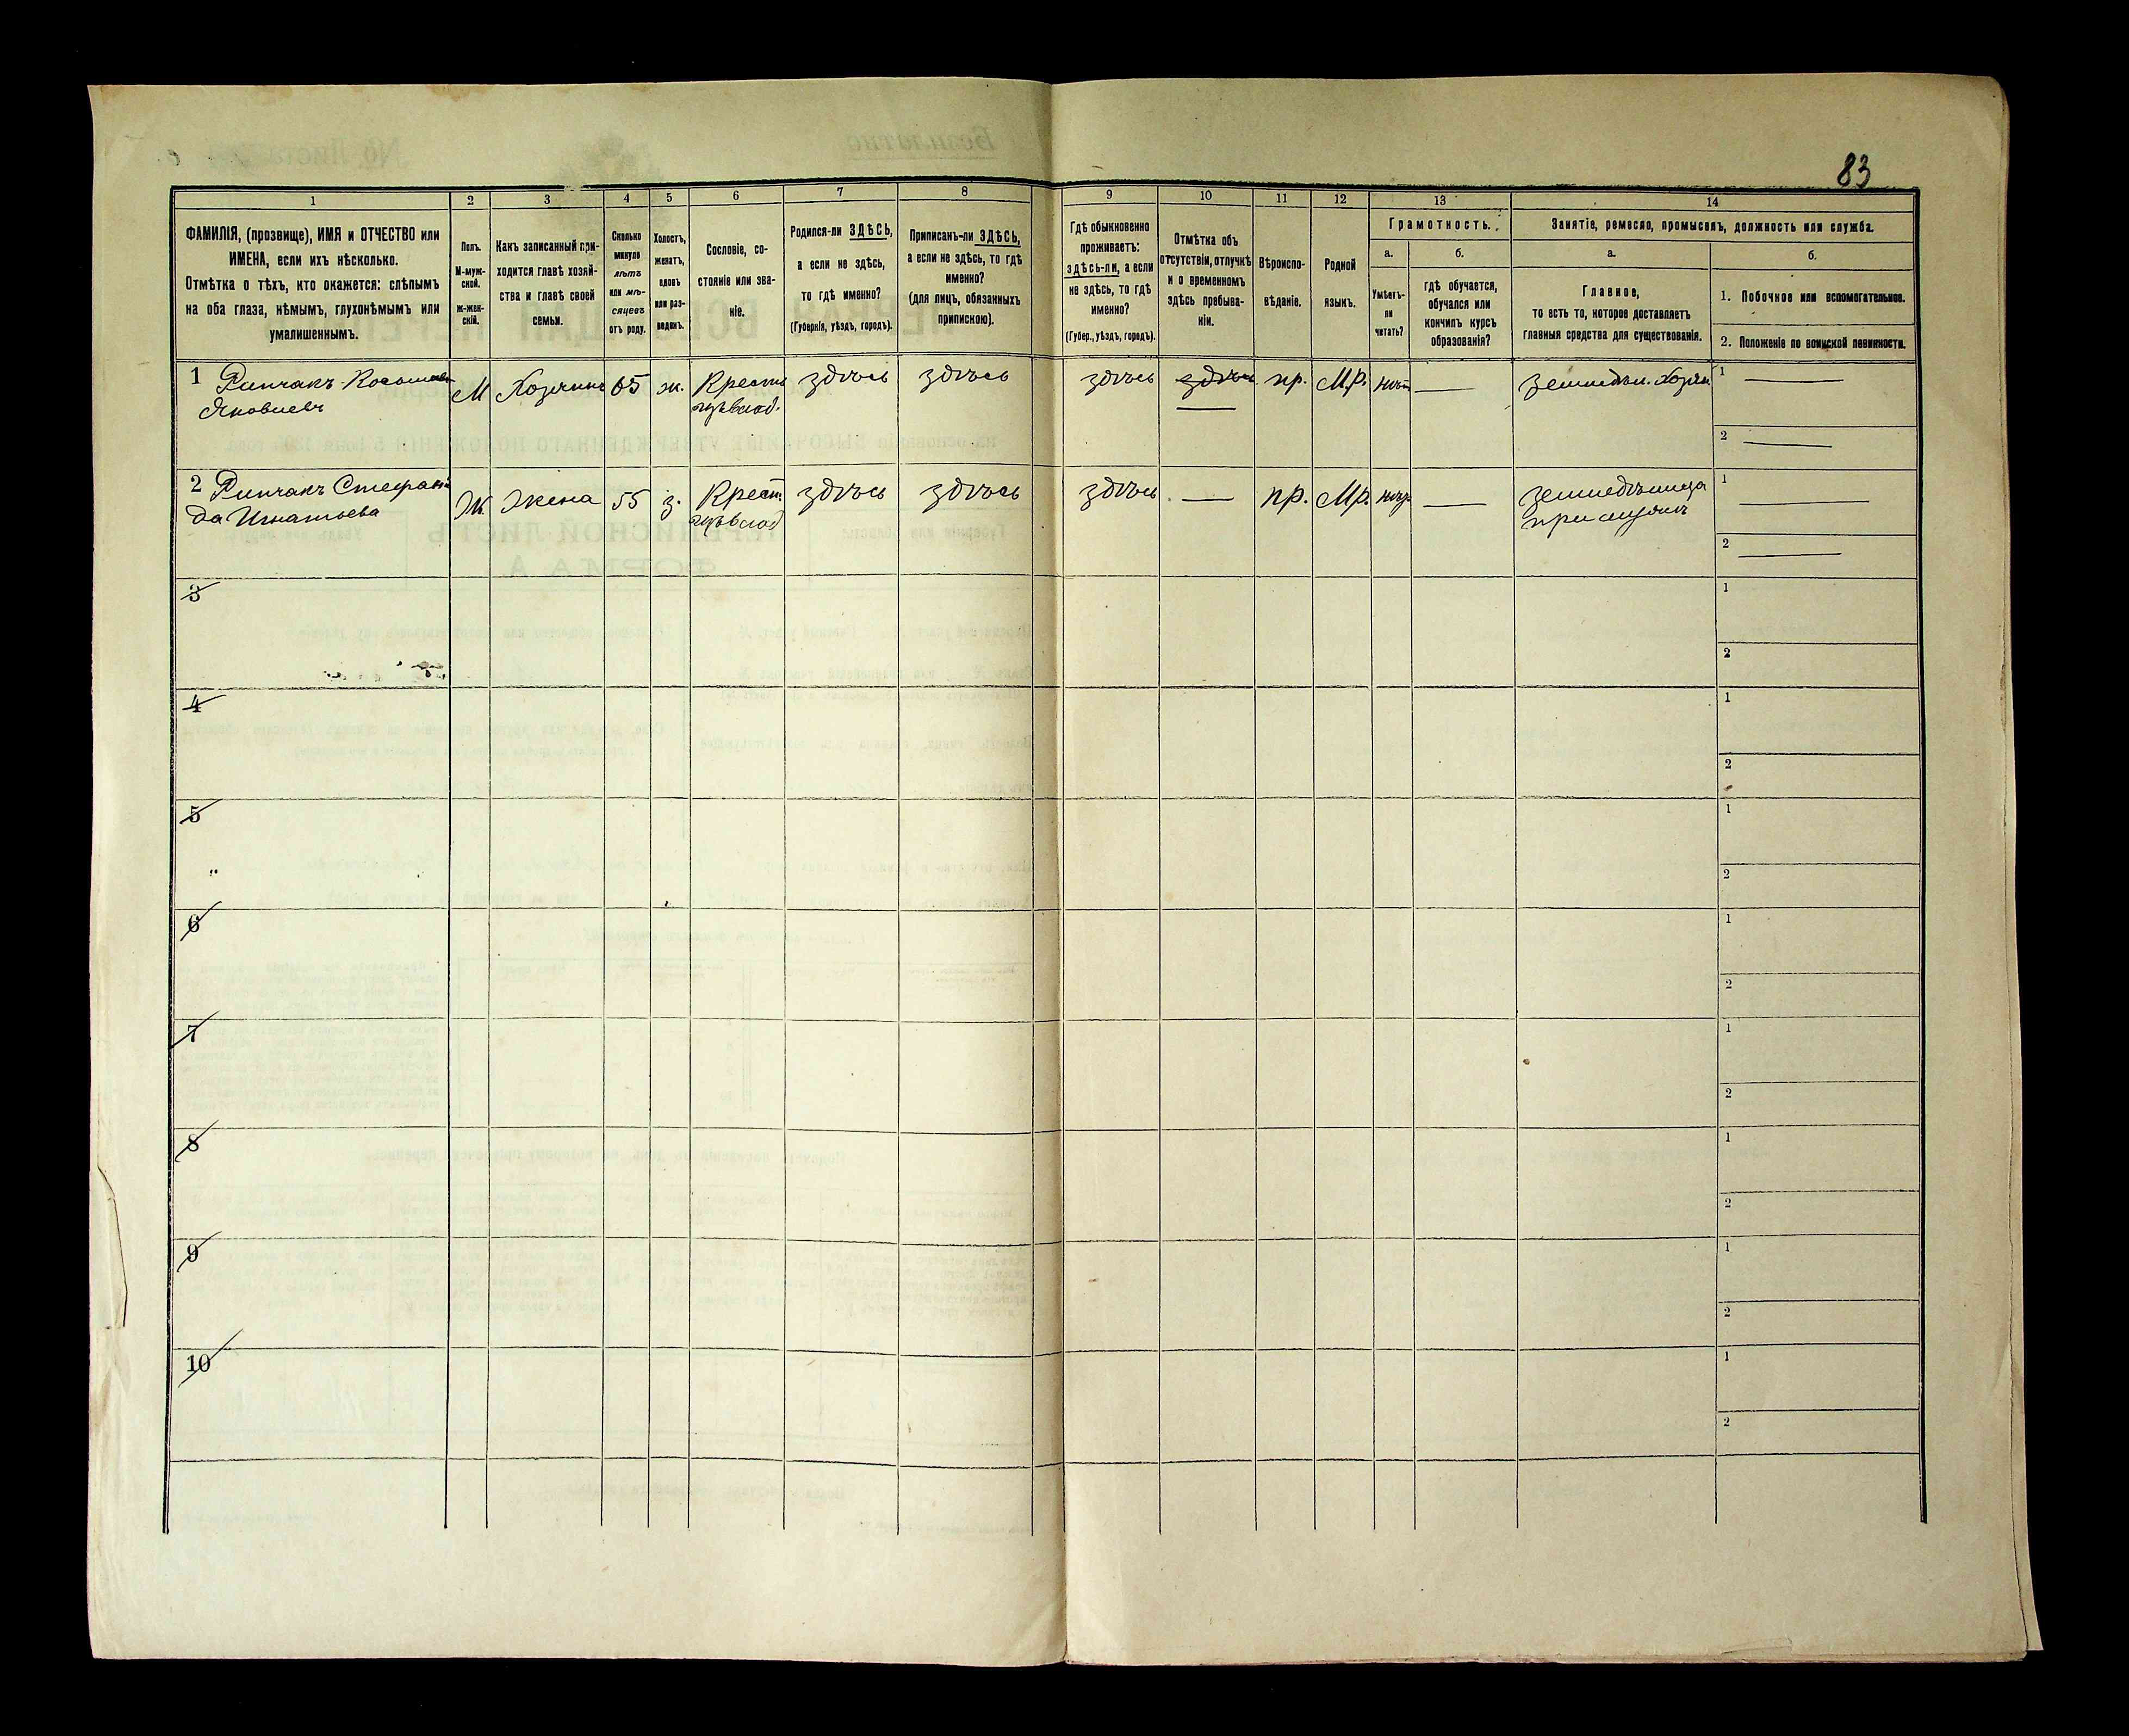 83
1
2
3
4
5
6
7
8
9
10
11
12
13
14
ФАМИЛІЯ, (прозвище), ИМЯ и ОТЧЕСТВО или
ИМЕНА, если ихъ нѣсколько.
Отмѣтка о тѣхъ, кто окажется: слѣпымъ
на оба глаза, нѣмымъ, глухонѣмымъ или
умалишеннымъ.
Полъ.
М-муж-
ской.
ж-жен-
скій.
Какъ записанный при-
ходится главѣ хозяй-
ства и главѣ своей
семьи.
Сколько
минуло
лѣтъ
или мѣ-
сяцевъ
отъ роду.
Холостъ,
женатъ,
вдовъ
или раз-
веденъ.
Сословіе, со-
стояніе или зва-
ніе.
Родился-ли ЗДѢСЬ,
а если не здѣсь,
то гдѣ именно?
(Губернія, уѣздъ, городъ).
Приписанъ-ли ЗДѢСЬ,
а если не здѣсь, то гдѣ
именно?
(для лицъ, обязанныхъ
припискою).
Гдѣ обыкновенно
проживаетъ:
здѣсь-ли, а если
не здѣсь, то гдѣ
именно?
(Губер., уѣздъ, городъ).
Отмѣтка объ
отсутствіи, отлучкѣ
и о временномъ
здѣсь пребыва-
ніи.
Вѣроиспо-
вѣданіе.
Родной
языкъ.
Грамотность.
а.
Умѣетъ-
ли
читать?
б.
гдѣ обучается,
обучался или
кончилъ курсъ
образованія?
Занятіе, ремесло, промыселъ, должность или служба.
а.
Главное,
то есть то, которое доставляетъ
главныя средства для существованія.
б.
1. Побочное или вспомогательное.
2. Положеніе по воинской повинности.
1
Яковлевъ
М Хозяинъ 65 ж. Крестьян
здѣсь здѣсь здѣсь здѣсь пр. М.р. нѣтъ
земледѣл. хозяин
1
2
2
да Игнатьева
Ж Жена 55 з. Крест.
здѣсь здѣсь здѣсь пр. М.р.
земледѣлица
при мужѣ
1
2
3
1
2
4
1
2
5
1
2
6
1
2
7
1
2
8
1
2
9
1
2
10
1
2